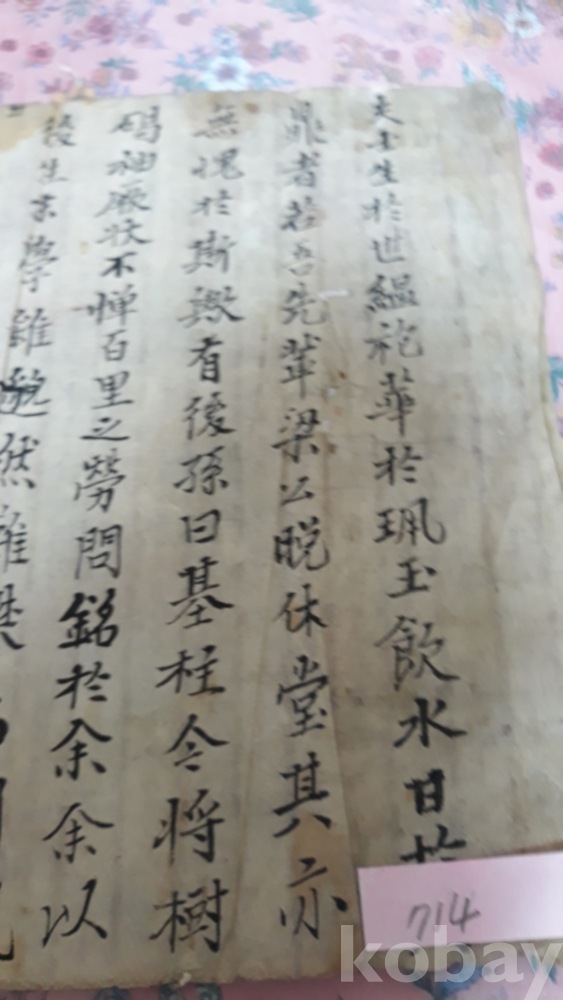 夫士生於世縕袍華於珮玉飲水甘於
鼎者若吾先輩梁公晩休堂其亦
無愧於斯歟有後孫曰基柱今将樹
碣袖厥状不憚百里之勞問銘於余余以
後生末學雖邈然難
714
kobay